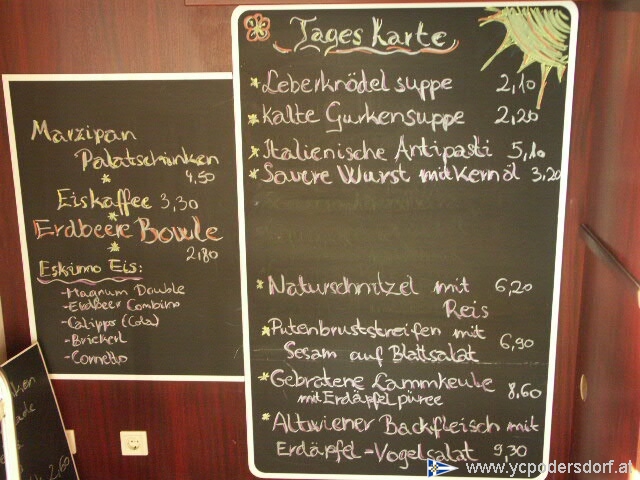 Tages Karte
*Leberknödelsuppe 2,10
*Kalte Gurkensuppe 2,20
*Italienische Antipasti 5,10
*Saure Wurst mit Kernöl 3,20
*Naturschnitzel mit 6,20
Reis
*Putenbruststreifen mit
Sesam auf Blattsalat 6,90
*Gebratene Lammkeule 8,60
mit Erdäpfelpüree
*Altwiener Backfleisch mit
Erdäpfel-Vogelsalat 9,30
Marzipan
Palatschinken
* 4,50
Eiskaffee 3,30
*
Erdbeere Bowle
* 2,80
Eskimo Eis:
-Magnum Double
-Erdbeer Combino
-Calippo (Cola)
-Brickerl
-Cornetto
2,60
www.ycpodersdorf.at